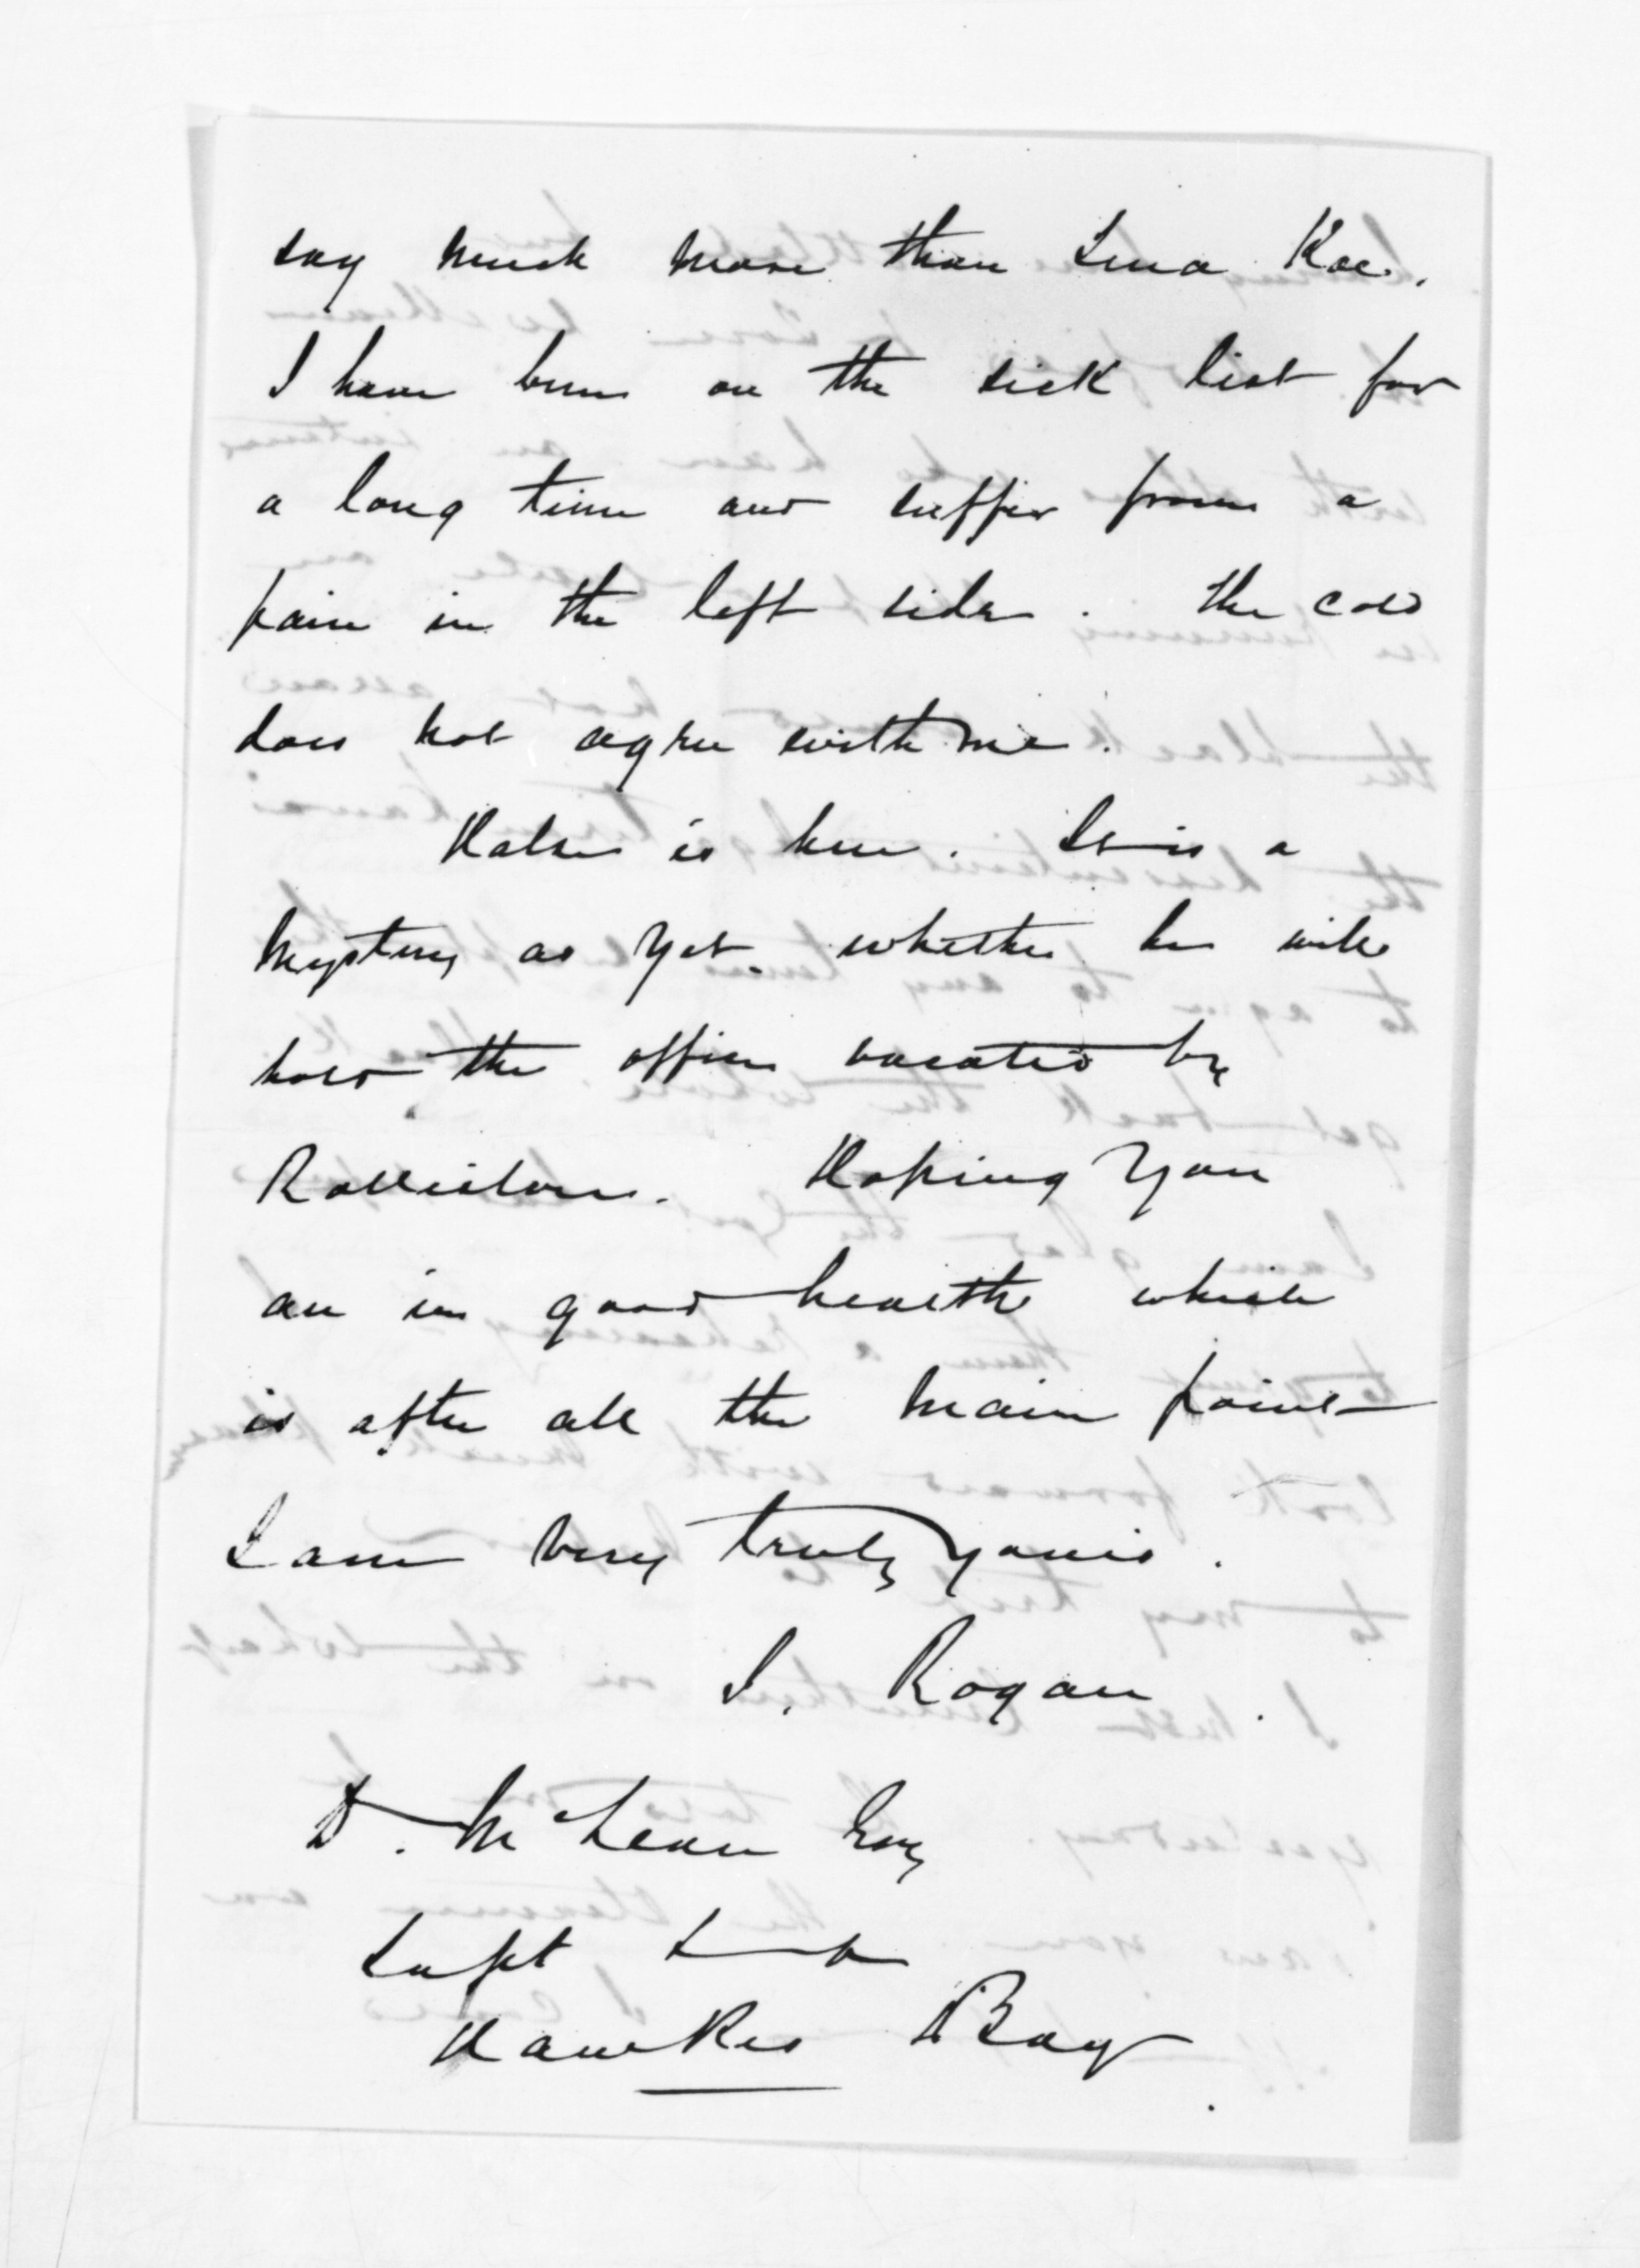 say much more than Tena Koe.
I have been on the sick list for
a long time and suffer from a
pain in the left side. The cold
does not agree with me.
Halse is here. It is a
mystery as yet whether he will
hold the office vacated by
Rolleston. Hoping you
are in good health which
is after all the main point
I am very truly yours.
J. Rogan.
D. McLean Esq
Supt
Hawkes Bay